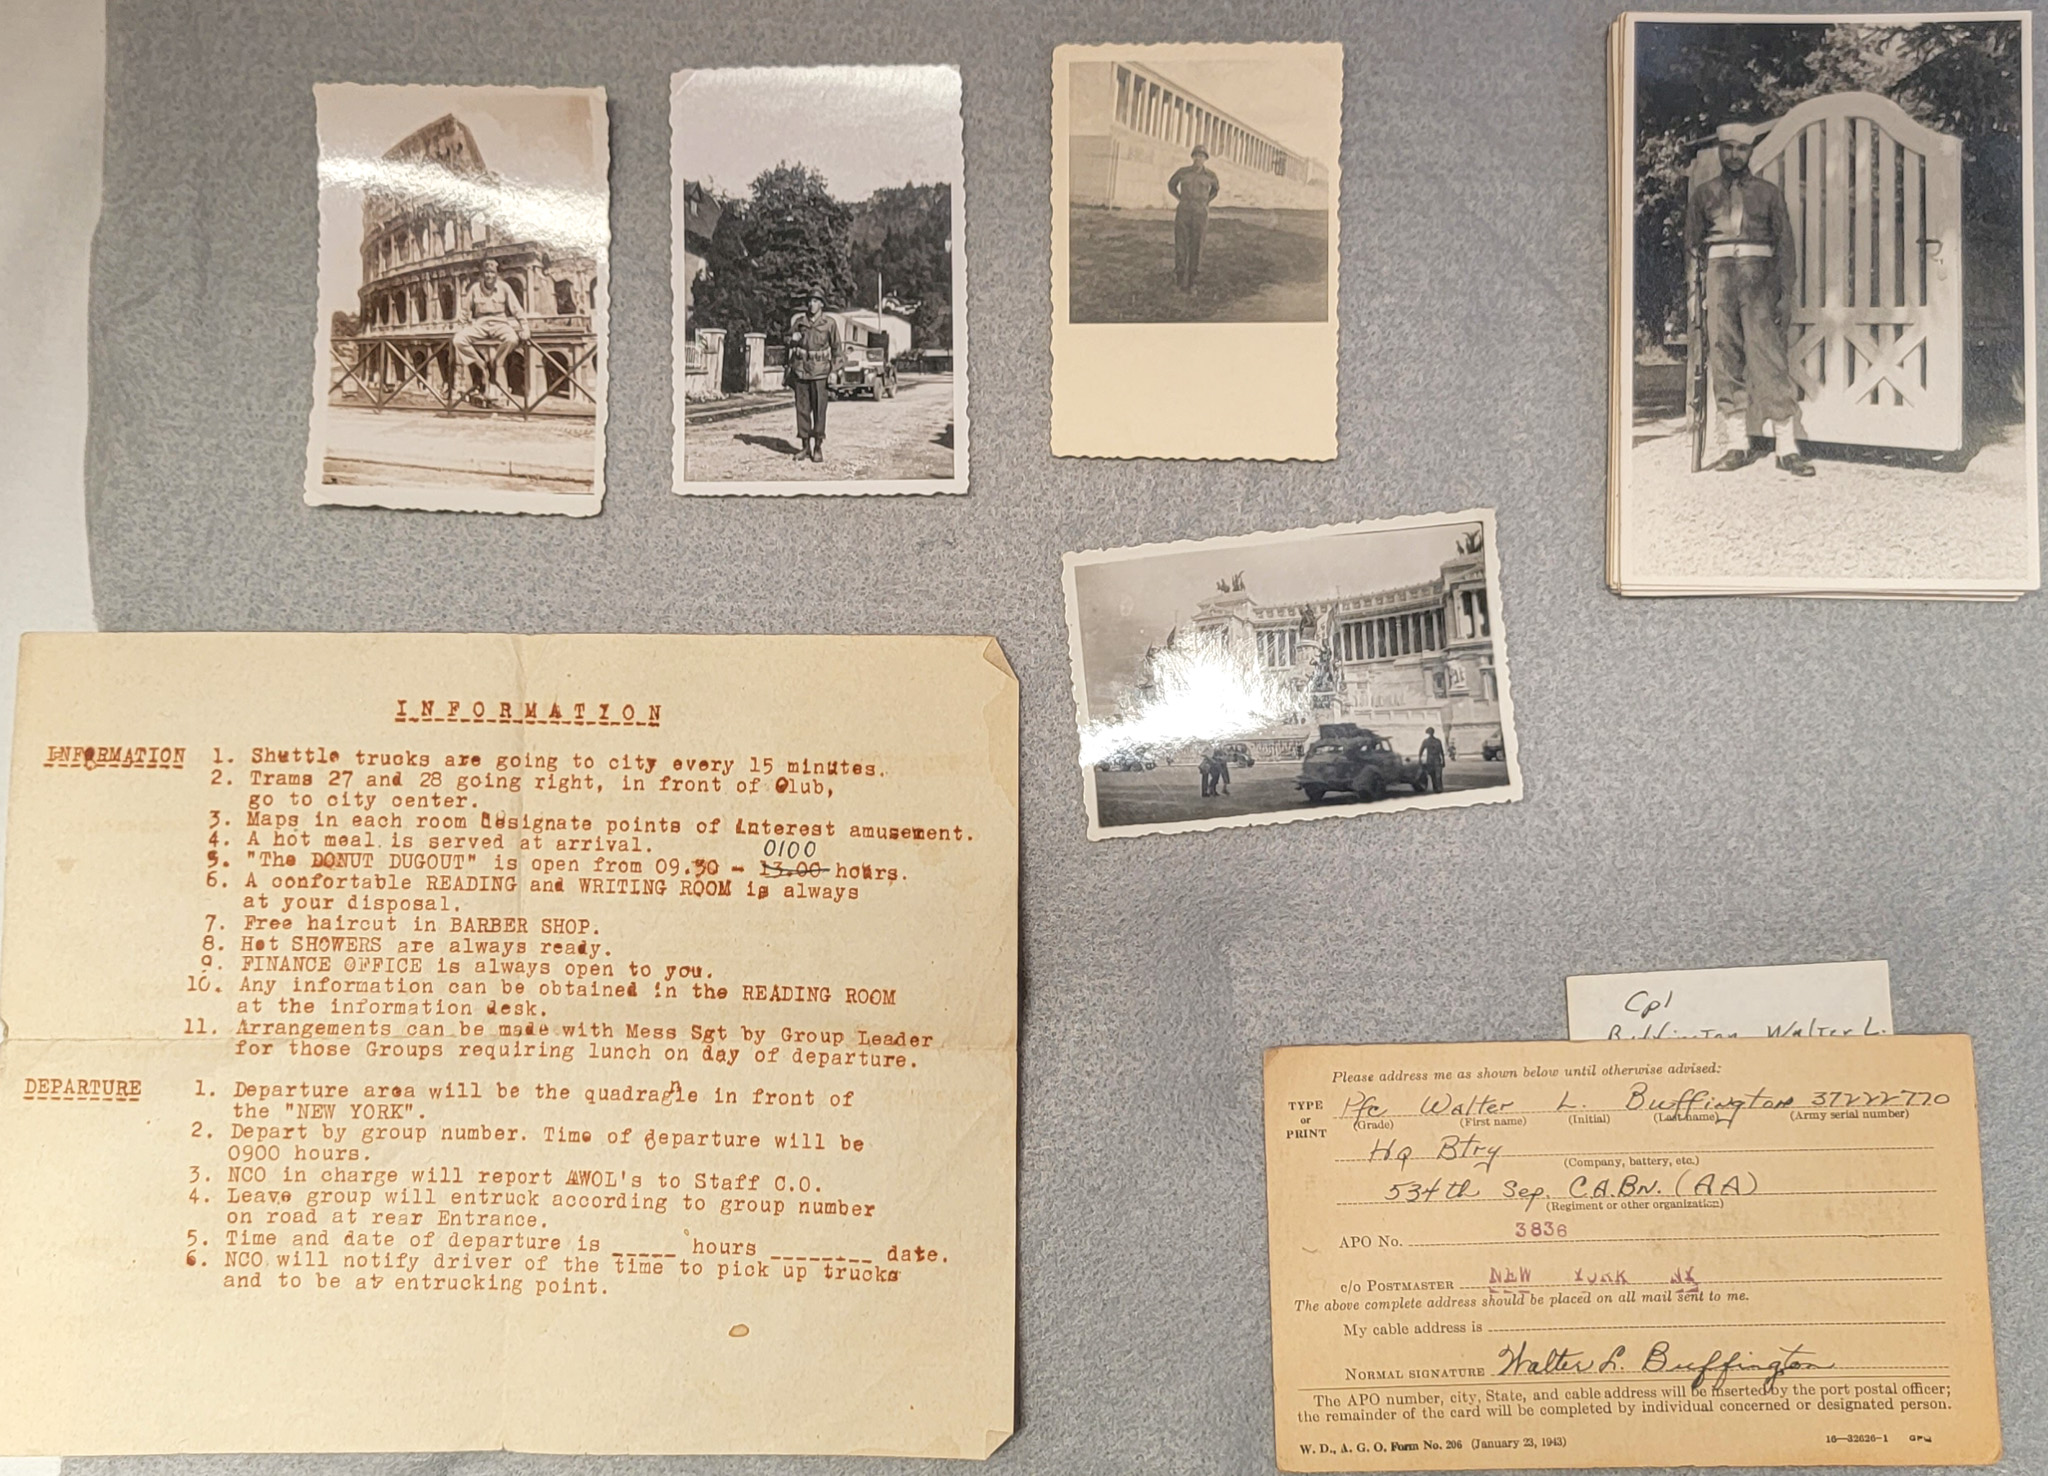 INFORMATION
INFORMATION 1. Shuttle trucks are going to city every 15 minutes.
2. Trams 27 and 28 going right, in front of Club,
go to city center.
3. Maps in each room designate points of interest amusement.
4. A hot meal is served at arrival.
0100
5. "The DONUT DUGOUT" is open from 09.30 - 13.00 hours.
6. A confortable READING and WRITING ROOM is always
at your disposal.
7. Free haircut in BARBER SHOP.
8. Hot SHOWERS are always ready.
9. FINANCE OFFICE is always open to you.
10. Any information can be obtained in the READING ROOM
at the information desk.
11. Arrangements can be made with Mess Sgt by Group Leader
for those Groups requiring lunch on day of departure.
DEPARTURE 1. Departure area will be the quadragle in front of
n
the "NEW YORK".
2. Depart by group number. Time of departure will be
0900 hours.
3. NCO in charge will report AWOL's to Staff C.O.
4. Leave group will entruck according to group number
on road at rear Entrance.
5. Time and date of departure is _____ hours _______ date.
6. NCO will notify driver of the time to pick up trucks
and to be at entrucking point.
Cpl
Buffington Walter L.
Please address me as shown below until otherwise advised:
TYPE or PRINT
Pfc Walter L. Buffington 37222770
(Grade) (First name) (Initial) (Last name) (Army serial number)
Hq Btry
(Company, battery, etc.)
534th Sep. C.A.Bn. (AA)
(Regiment or other organization)
APO No. 3836
c/o POSTMASTER NEW YORK NY
The above complete address should be placed on all mail sent to me.
My cable address is
NORMAL SIGNATURE Walter L. Buffington
The APO number, city, State, and cable address will be inserted by the port postal officer;
the remainder of the card will be completed by individual concerned or designated person.
W. D., A. G. O. Form No. 206 (January 23, 1943) 16—32626-1 GPO